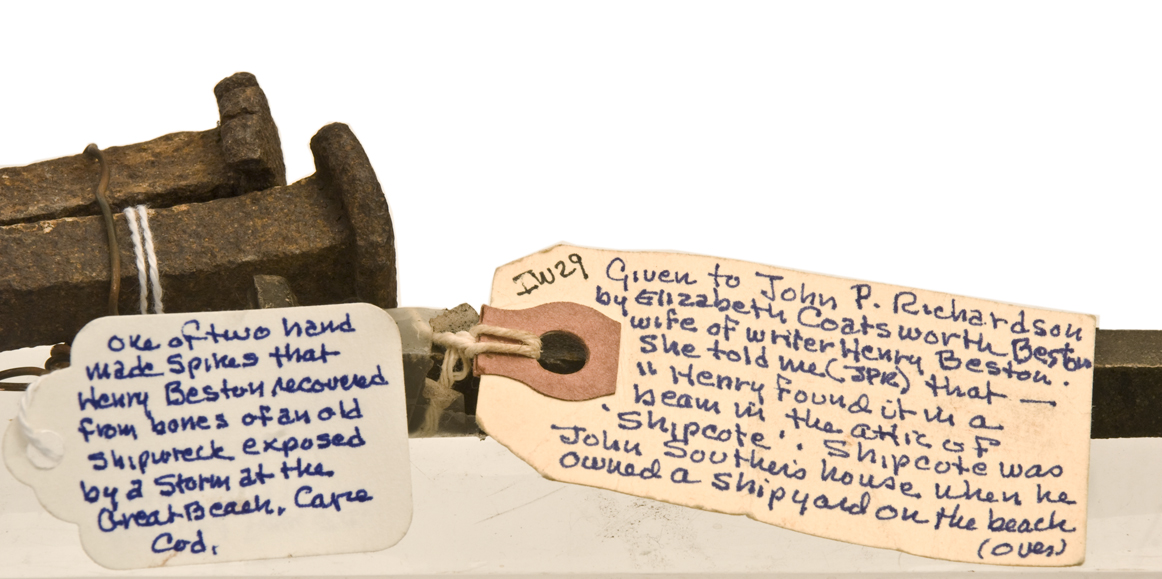 One of two hand
made Spikes that
Henry Beston recovered
from bones of an old
shipwreck exposed
by a Storm at the
Great Beach, Cape
Cod.
IW29
Given to John P. Richardson
by Elizabeth Coatsworth Beston
wife of writer Henry Beston.
She told me (JPR) that —
"Henry found it in a
beam in the attic of
'Shipcote'. Shipcote was
John Souther's house when he
owned a shipyard on the beach
(over)